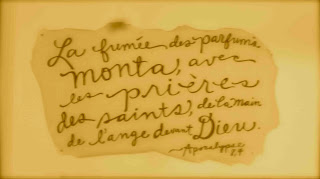 La fumée des parfums
monta, avec
les prières
des saints, de la main
de l'ange devant Dieu.
~Apocalypse
8.4